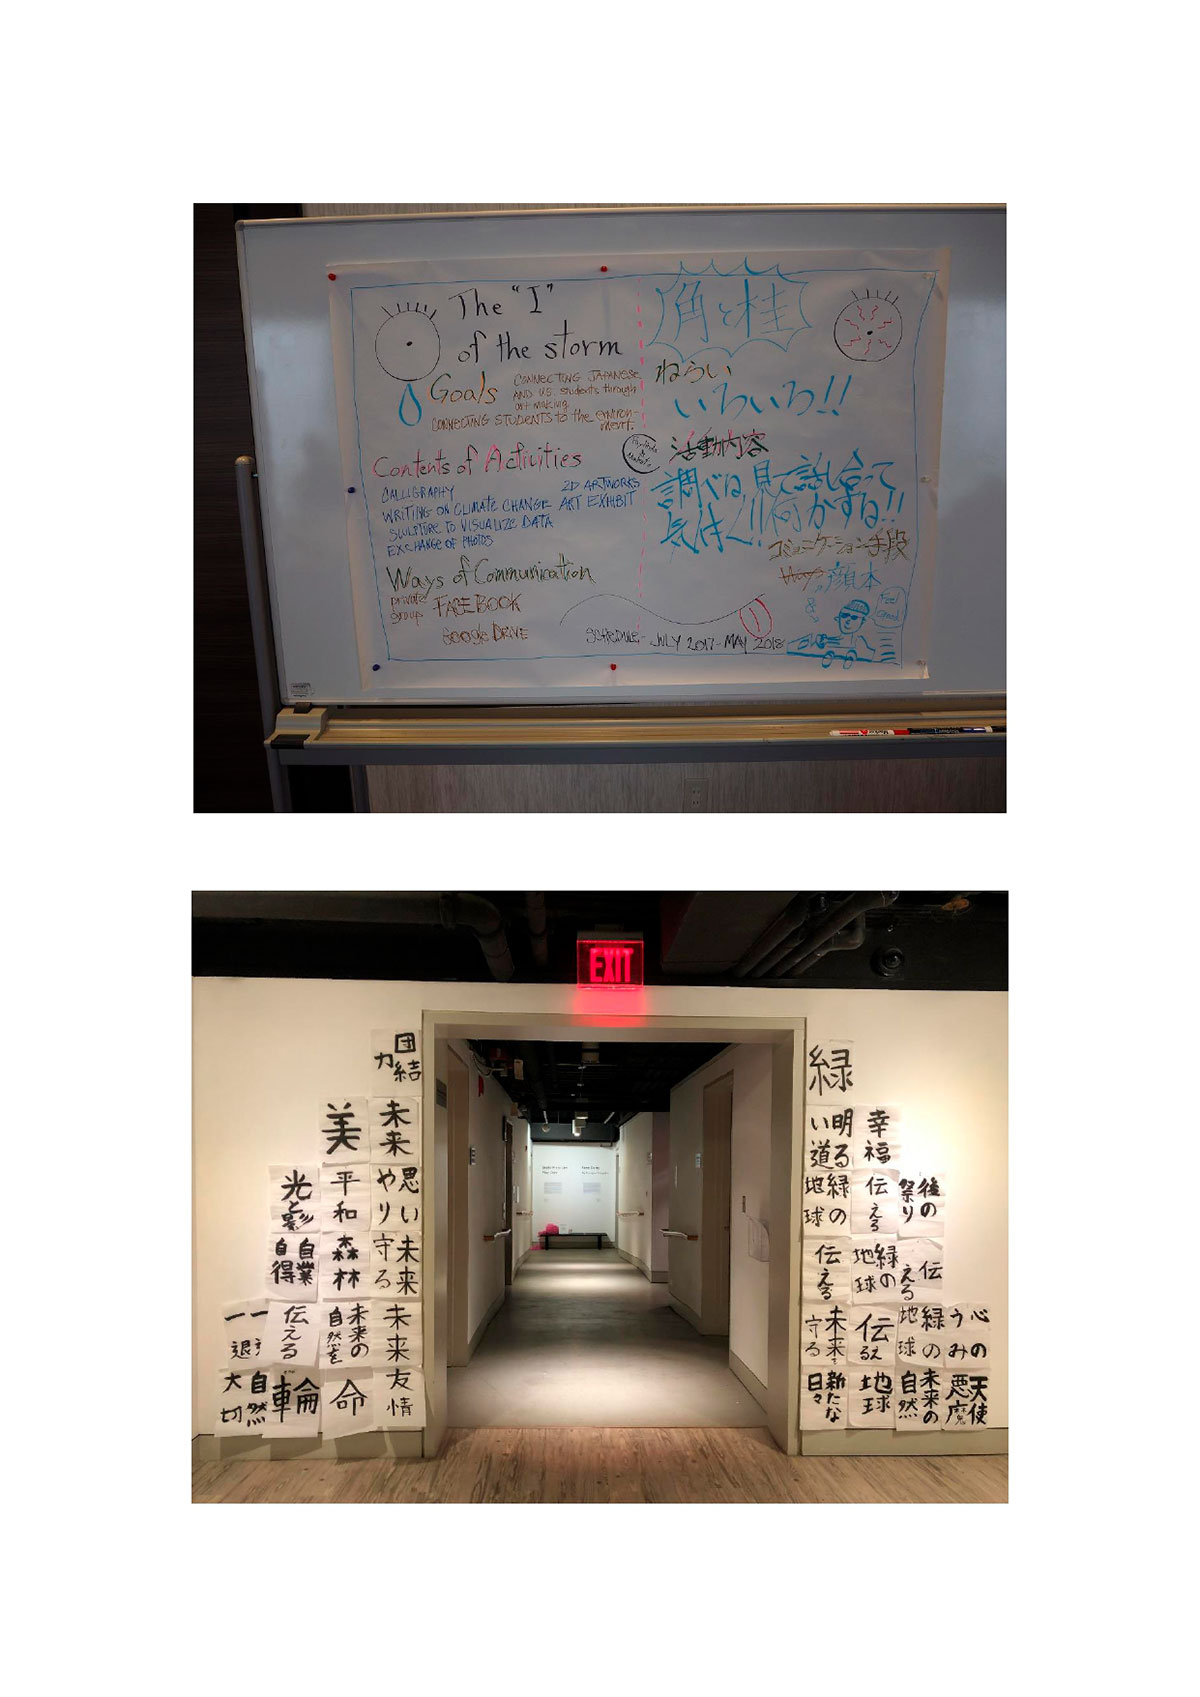 The "I"
of the storm
Goals
CONNECTING JAPANESE
AND U.S. students through
art making
CONNECTING STUDENTS to the environ-
ment.
Contents of Activities
CALLIGRAPHY
2D ARTWORKS
WRITING ON CLIMATE CHANGE
ART EXHIBIT
SCULPTURE TO VISUALIZE DATA
EXCHANGE OF PHOTOS
Ways of Communication
private
group
FACEBOOK
Google DRIVE
SCHEDULE- JULY 2017 - MAY 2018
角と桂
ねらい
いろいろ!!
活動内容
調べ、見て話し合って
気付く!!何かする!!
コミュニケーション手段
顔本
Feel
Good
EXIT
団結
力
未来
思い
やり
未来
守る
未来
友情
美
平和
森林
未来の
自然を
命
光と影
自業
自得
伝える
輪
一
一
退
自然
大切
緑
明る
い道
緑の
地球
伝える
未来を
守る
新たな
日々
幸福
伝える
緑の
地球
伝える
地球
後の
祭り
伝える
緑の
地球
未来の
自然
心の
うみ
天使
悪魔